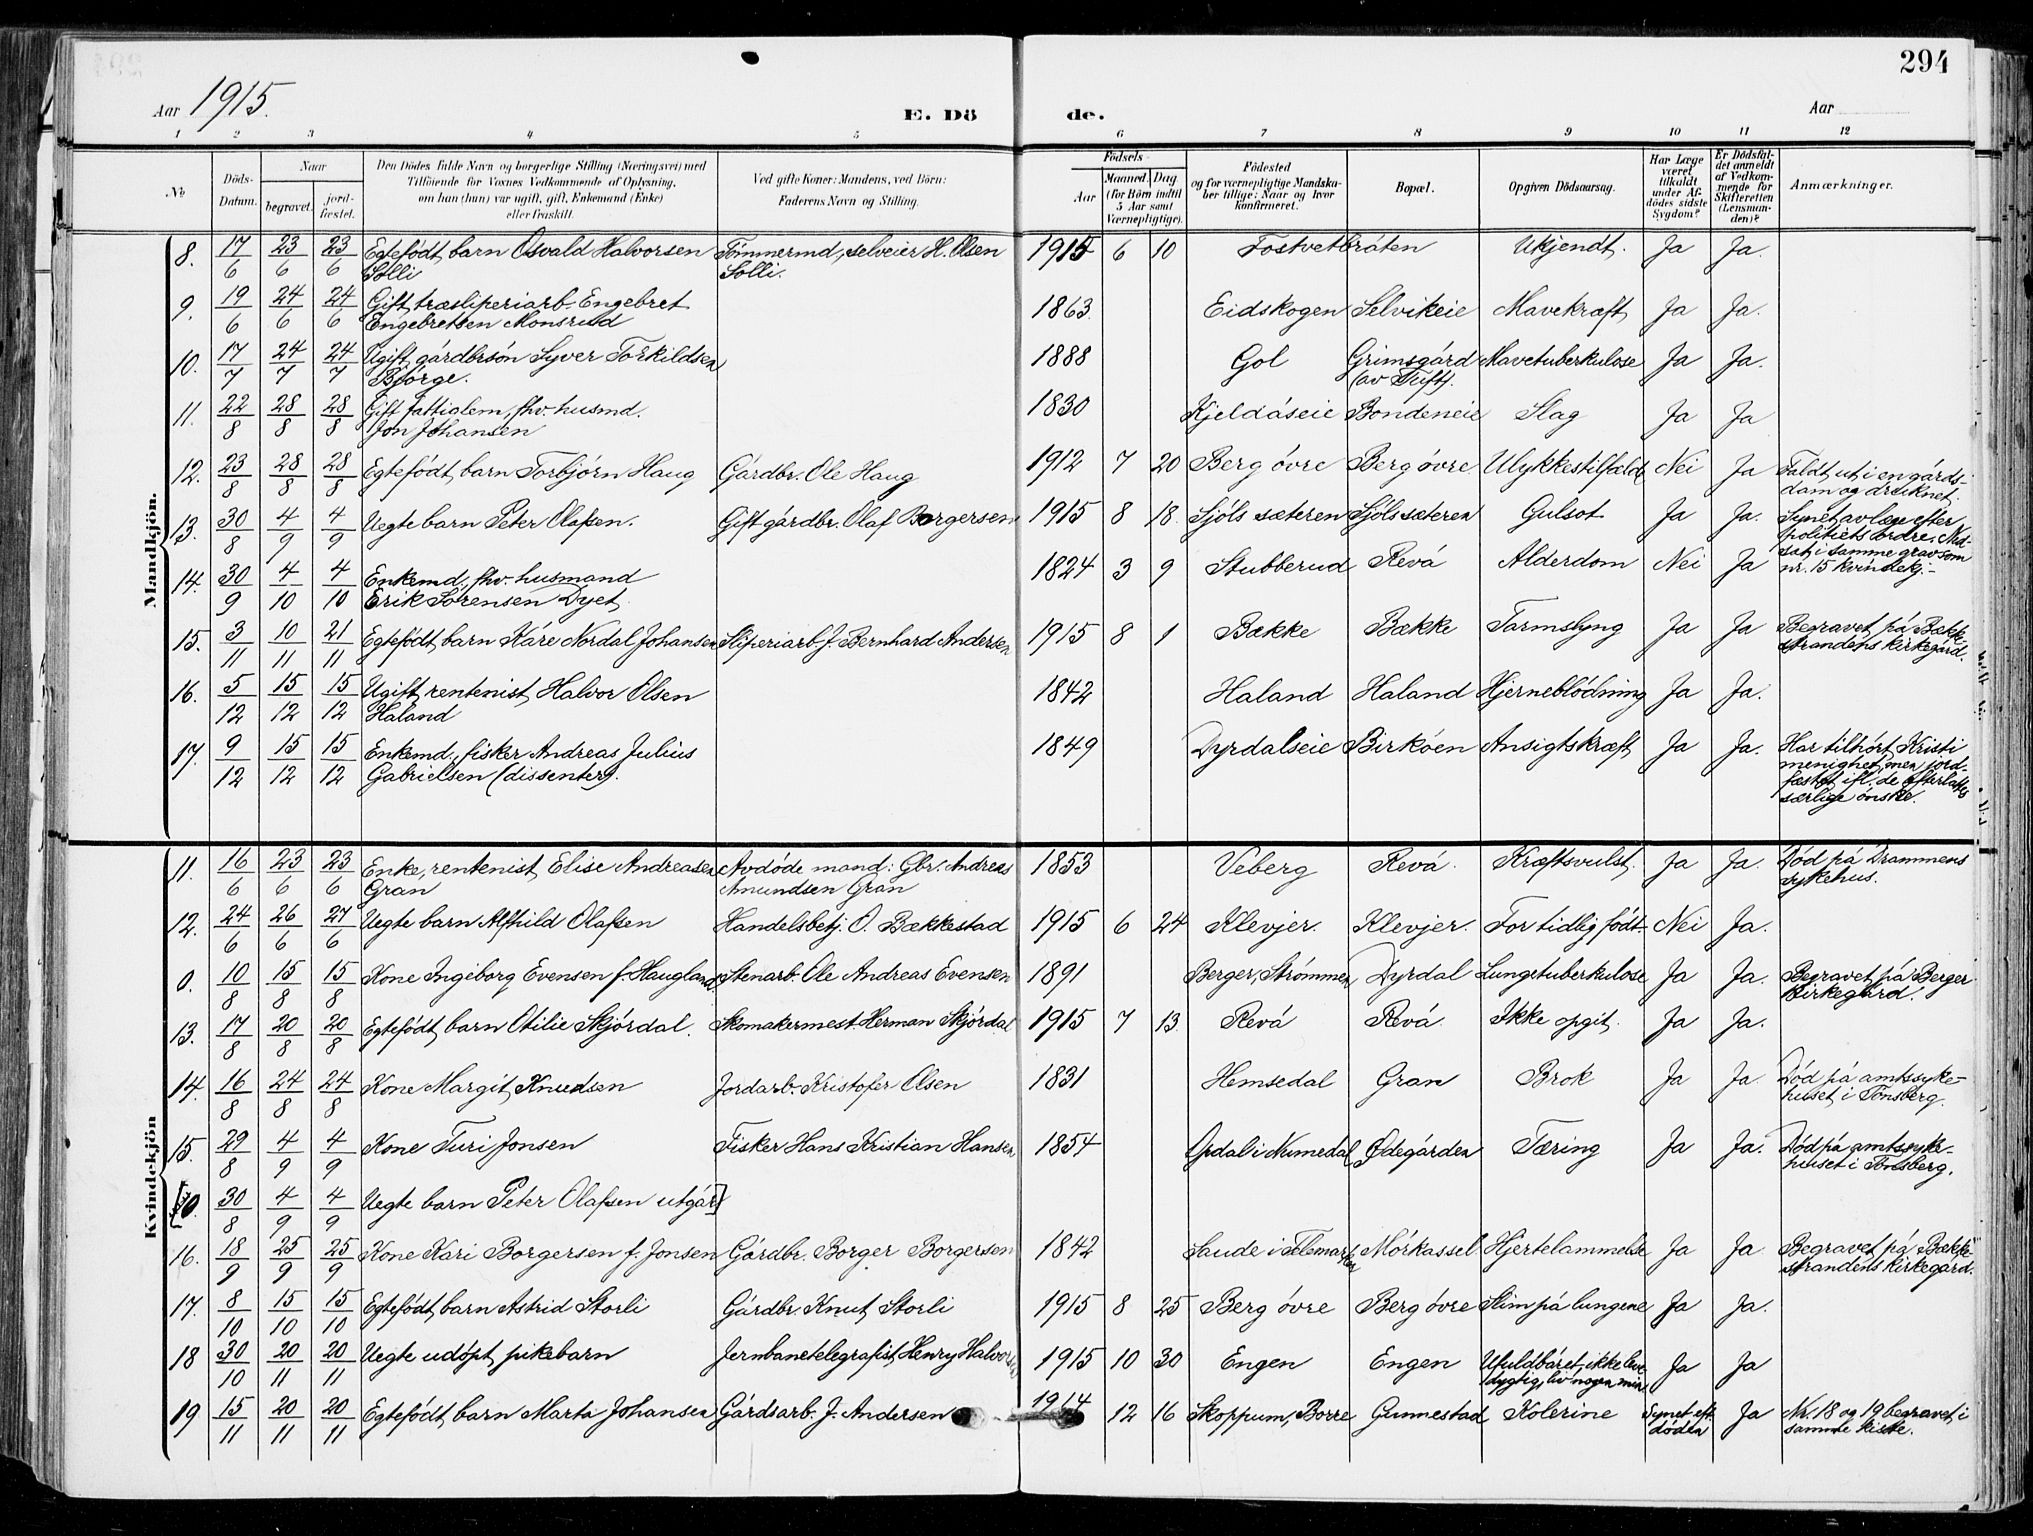 294
Aar 1915.
E. Dö de.
Aar
1 2 3 4 5 6 7 8 9 10 11 12
No
Döds-Datum.
Naar
begravet. jordfæstet.
Den Dödes fulde Navn og borgerlige Stilling (Næringsvei) med
Tilföiende for Voxnes Vedkommende af Oplysning,
om han (hun) var ugift, gift, Enkemand (Enke)
eller fraskilt.
Ved gifte Koner: Mandens, ved Börn:
Faderens Navn og Stilling.
Födsels-
Aar Maaned. Dag.
(for Börn indtil
5 Aar samt
Værnepligtige).
Födested
og for værnepligtige Mandskaber tillige: Naar og hvor
konfirmeret.
Bopæl.
Opgiven Dödsaarsag.
Har Læge været tilkaldt under Afdödes sidste Sygdom?
Er Dödsfaldet anmeldt af Vedkommende for Skifteretten (Lensmanden)?
Anmærkninger.
Mandkjön.
8. 17/6 23/6 23/6 Egtefödt barn Osvald Halvorsen Tömmermd, selveier H. Olsen 1915 6 10 Fostvetbråten Ukjendt. Ja Ja.
Solli Solli.
9. 19/6 24/6 24/6 Gift træsliperiarb. Engebret 1863 Eidskogen Selvikeie Mavekræft Ja Ja.
Engebretsen Monsrud
10. 17/7 24/7 24/7 Ugift gårdbrsön Syver Torkildsen 1888 Gol Grimsgård Mavetuberkulose Ja Ja.
Björge. (av Tuft).
11. 22/8 28/8 28/8 Gift fattiglem, fhv. husmd. 1830 Kjeldåseie Bondeneie Slag Ja Ja
Jon Johansen
12. 23/8 28/8 28/8 Egtefödt barn Torbjörn Haug Gårdbr. Ole Haug 1912 7 20 Berg övre Berg övre Ulykkestilfælde Nei Ja Faldt ut i en gårds-
dam og druknet.
13. 30/8 4/9 4/9 Uegte barn Peter Olafsen. Gift gårdbr. Olaf Borgersen 1915 8 18 Sjöls sæteren Sjöls sæteren Gulsot Ja Ja. Synet av læge efter
politiets ordre. Ned-
sat i samme grav som
nr. 15 kvindekj.-
14. 30/9 4/10 4/10 Enkemd, fhv. husmand 1824 3 9 Stubberud Revå Alderdom Nei Ja
Erik Sörensen Dyet.
15. 3/11 10/11 21/11 Egtefödt barn Kåre Nordal Johansen Sliperiarb. J. Bernhard Andersen 1915 8 1 Bække Bække Tarmslyng Ja Ja Begravet på Bække-
strandens kirkegård.
16. 5/12 15/12 15/12 Ugift rentenist Halvor Olsen 1842 Haland Haland Hjerneblödning Ja Ja.
Haland
17. 9/12 15/12 15/12 Enkemd, fisker Andreas Julius 1849 Dyrdalseie Birköen Ansigtskræft Ja Ja. Har tilhört Kristi
Gabrielsen (dissenter). menighet, men jord-
fæstet ifl. de efterlattes
særlige önske.
Kvindekjön
11. 16/6 23/6 23/6 Enke, rentenist Elise Andreasen Avdöde mand: Gbr. Andreas 1853 Veberg Revå. Kræftsvulst. Ja Ja. Död på Drammens
Gran Amundsen Gran sykehus.
12. 24/6 26/6 27/6 Uegte barn Alfhild Olafsen Handelsbetj. O. Bækkestad 1915 6 24 Klevjer. Klevjer. For tidlig födt. Nei Ja.
0. 10/8 15/8 15/8 Kone Ingeborg Evensen f. Haugland Stenarb. Ole Andreas Evensen 1891 Berger, Strømmen Dyrdal Lungetuberkulose Ja Ja. Begravet på Berger
kirkegård.
13. 17/8 20/8 20/8 Egtefödt barn Otilie Skjördal. Skomakermest Herman Skjördal 1915 7 13 Revå Revå Ikke opgit. Ja Ja.
14. 16/8 24/8 24/8 Kone Margit Knudsen Jordarb. Kristofer Olsen 1831 Hemsedal Gran Brok Ja Ja. Död på amtssyke-
huset i Tönsberg.
15. 29/8 4/9 4/9 Kone Turi Jonsen Fisker Hans Kristian Hansen 1854 Opdal i Numedal Ødegården Tæring Ja Ja. Död på amtssyke-
huset i Tönsberg.
[0. 30/8 4/9 4/9 Uegte barn Peter Olafsen utgår]
16. 18/9 25/9 25/9 Kone Kari Borgersen f. Jonsen Gårdbr. Borger Borgersen 1842 Saude i Telemarken Mörkassel Hjertelammelse Ja Ja. Begravet på Bække-
strandens kirkegård.
17. 8/10 15/10 15/10 Egtefödt barn Astrid Storli Gårdbr. Knut Storli 1915 8 25 Berg övre Berg övre Slim på lungene Ja Ja.
18 30/10 20/11 20/11 Uegte udøpt pikebarn Jernbanetelegrafist Henry Halvorsen 1915 10 30 Engen Engen Ufuldbåret, ikke leve- Ja Ja
dygtig, liv nogen min.
19 15/11 20/11 20/11 Egtefödt barn Marta Johansen Gårdsarb. J. Andersen 1914 12 16 Skoppum, Borre Gunnestad Kolerine Synet eft. Ja Nr. 18 og 19 begravet i
döden samme kiste.